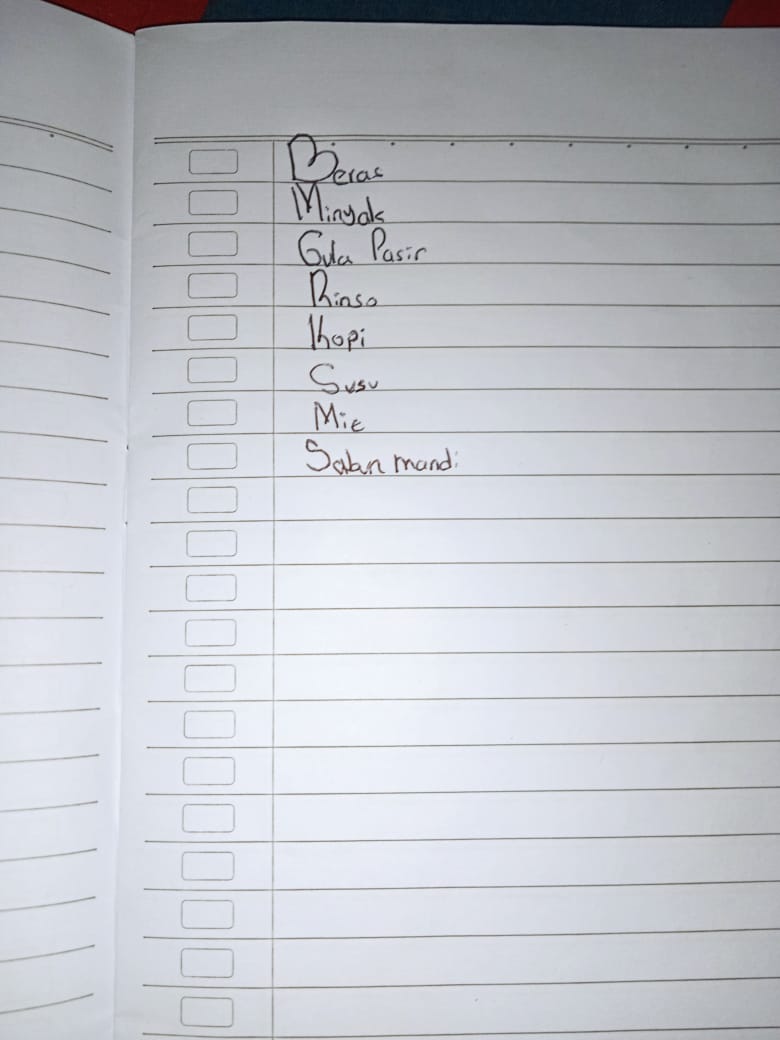 Beras
Minyak
Gula Pasir
Rinso
Kopi
Susu
Mie
Sabun mandi